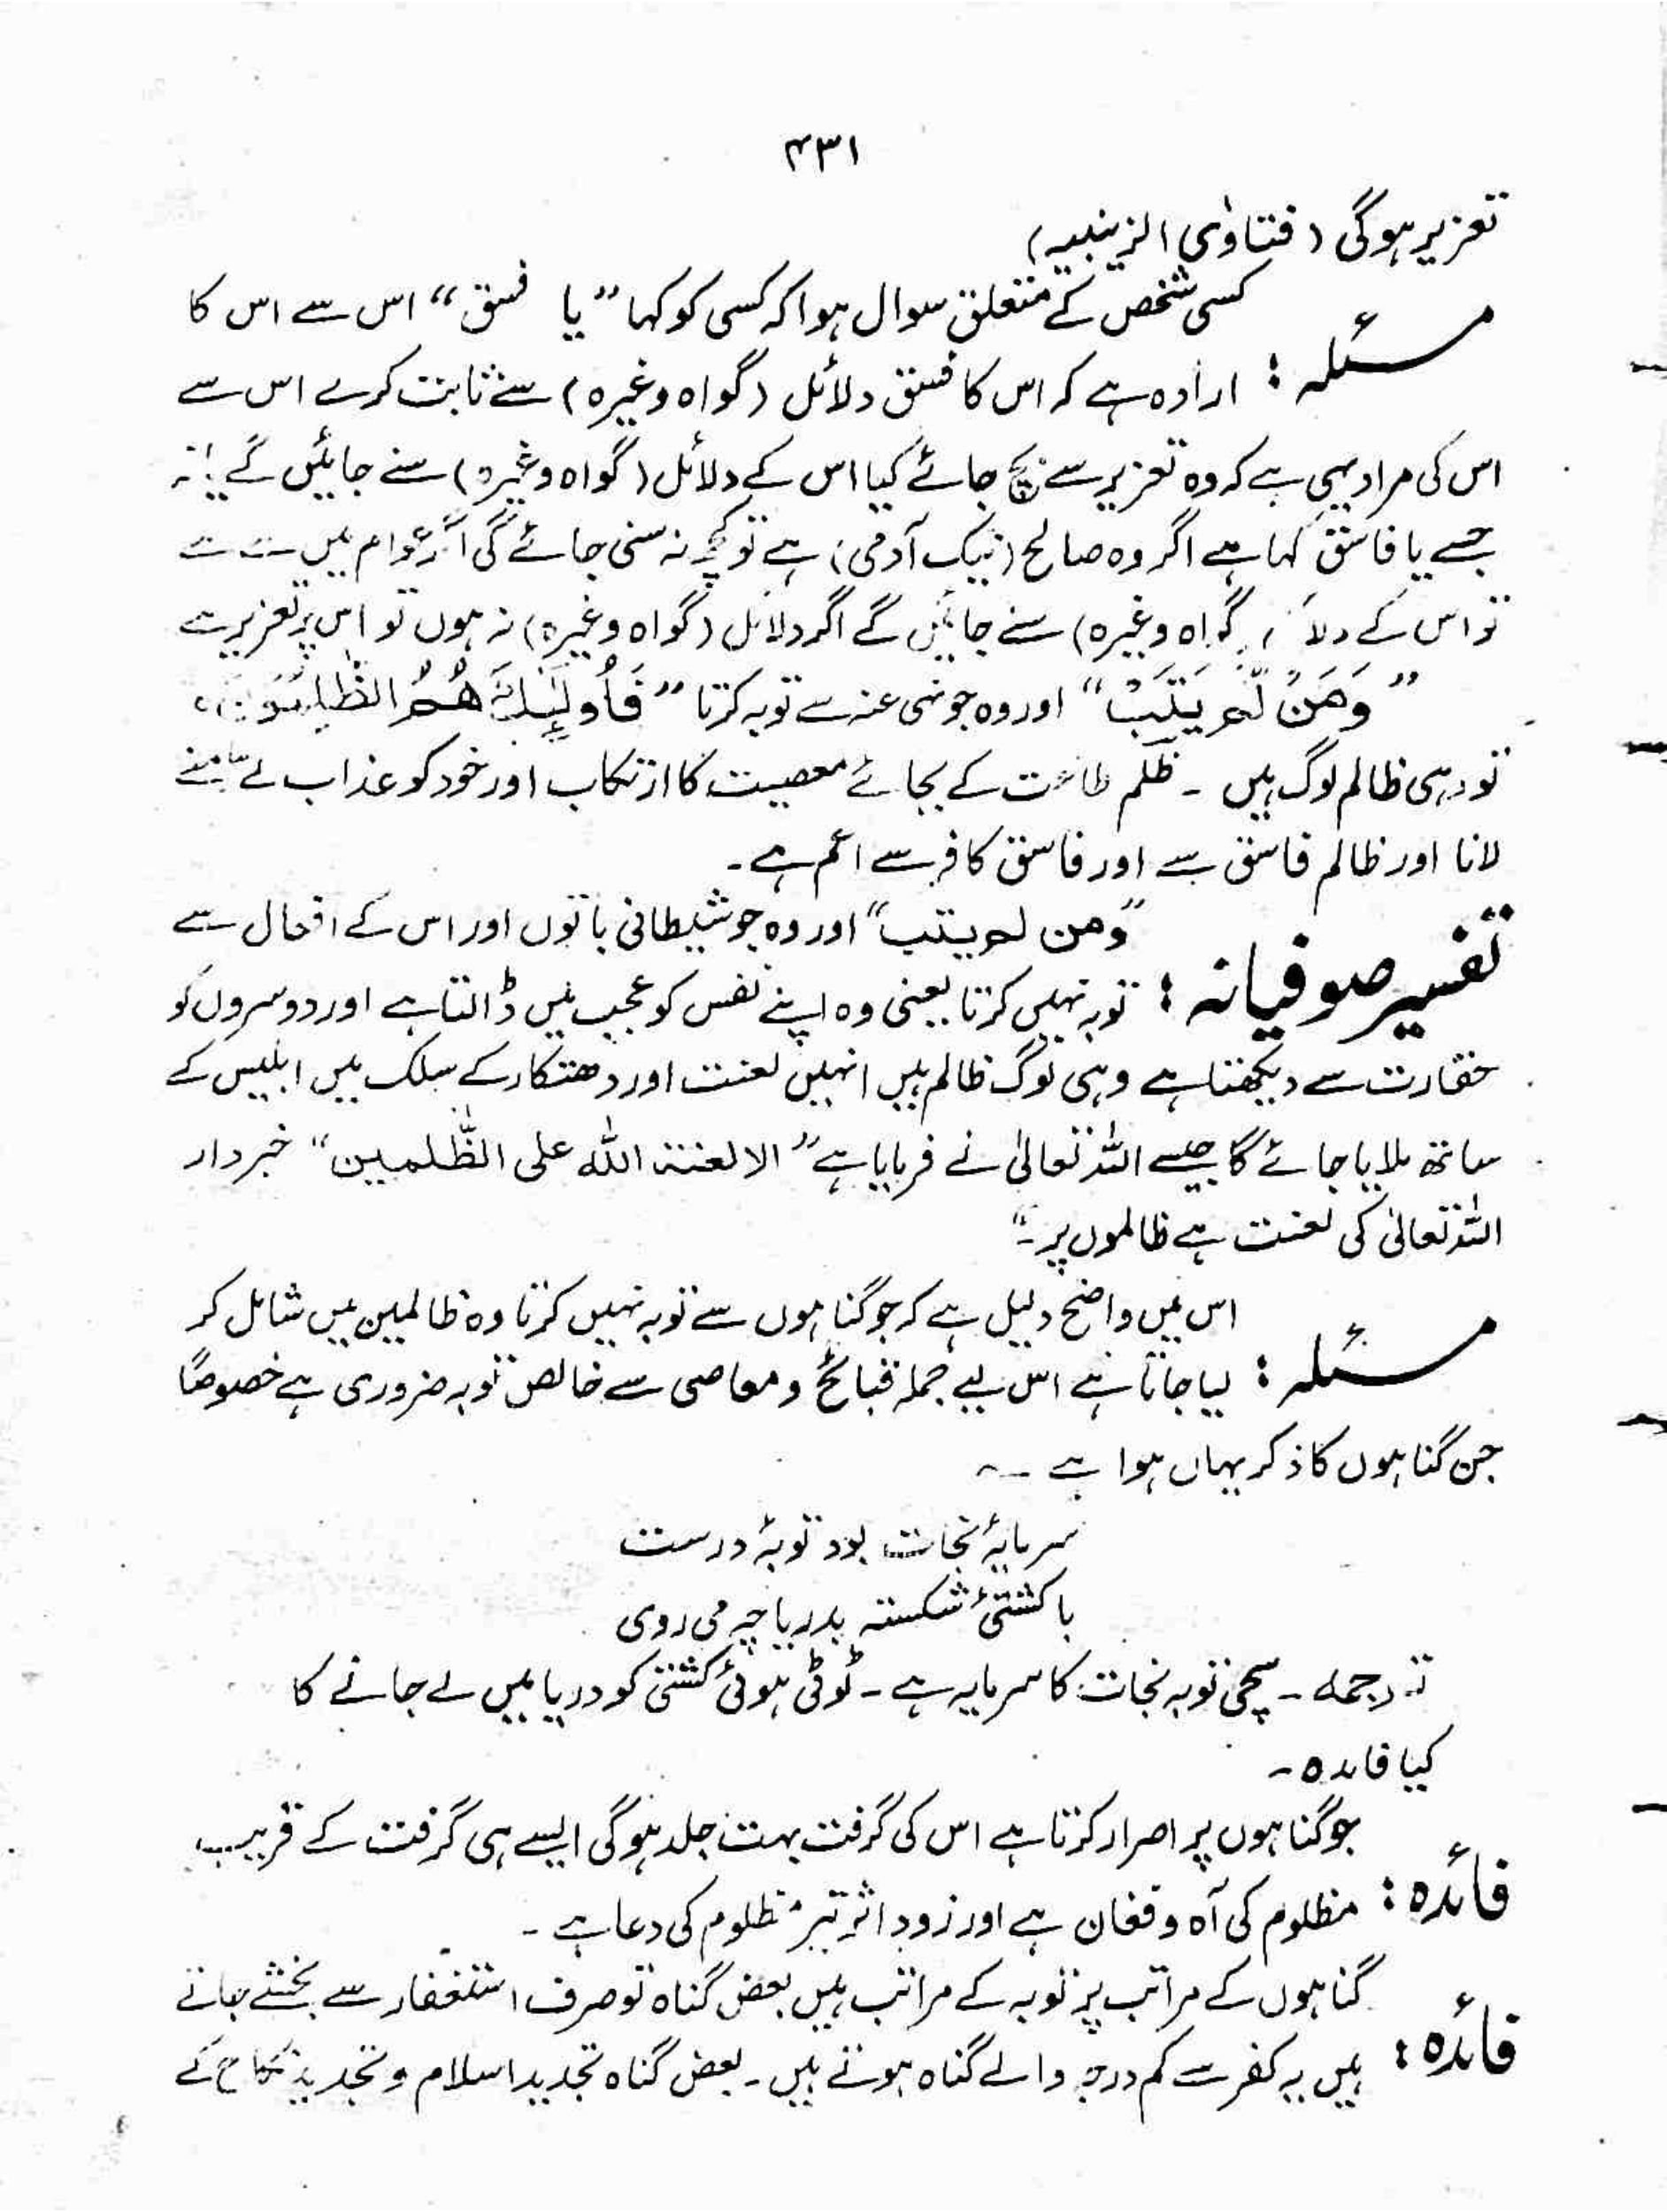 ۴۳۱
تعزیر ہوگی (فتاوٰی الزینیہ)
کسی شخص کے متعلق سوال ہوا کہ کسی کو کہا ”یا فسق“ اس سے اس کا
مسئلہ : ارادہ ہے کہ اس کا فسق دلائل (گواہ وغیرہ) سے ثابت کرے اس سے
اس کی مراد یہی ہے کہ وہ تعزیر سے بچ جائے کیا اس کے دلائل (گواہ وغیرہ) سنے جائیں گے یا نہ
جسے یا فاسق کہا ہے اگر وہ صالح (نیک آدمی) ہے تو کچھ نہ سنی جائے گی اگر عوام میں سے ہے
تو اس کے دلائل (گواہ وغیرہ) سنے جائیں گے اگر دلائل (گواہ وغیرہ) نہ ہوں تو اس پر تعزیر ہے
”وَمَنْ لَّمْ یَتُبْ“ اور وہ جو نہی عنہ سے توبہ کرتا ”فَأُولٰٓئِکَ هُمُ الظّٰلِمُوْنَ“
تو وہی ظالم لوگ ہیں ۔ ظلم طاعت کے بجائے معصیت کا ارتکاب اور خود کو عذاب کے سامنے
لانا اور ظالم فاسق ہے اور فاسق کافر سے اعم ہے ۔
”ومن لم یتب“ اور وہ جو شیطانی باتوں اور اس کے افعال سے
تفسیر صوفیانہ : توبہ نہیں کرتا یعنی وہ اپنے نفس کو عجب میں ڈالتا ہے اور دوسروں کو
حقارت سے دیکھتا ہے وہی لوگ ظالم ہیں انہیں لعنت اور دھتکار کے سلک میں ابلیس کے
ساتھ ملایا جائے گا جیسے اللہ تعالیٰ نے فرمایا ہے ”الا لعنۃ اللہ علی الظّٰلمین“ خبردار
اللہ تعالیٰ کی لعنت ہے ظالموں پر ۔“
اس میں واضح دلیل ہے کہ جو گناہوں سے توبہ نہیں کرتا وہ ظالمین میں شامل کر
مسئلہ : لیا جاتا ہے اس لیے جملہ قبائح و معاصی سے خالص توبہ ضروری ہے خصوصاً
جن گناہوں کا ذکر یہاں ہوا ہے ۔
سرمایۂ نجات بود توبۂ درست
با کشتئ شکستہ بدریا چہ می روی
ترجمہ ۔ سچی توبہ نجات کا سرمایہ ہے ۔ ٹوٹی ہوئی کشتی کو دریا میں لے جانے کا
کیا فائدہ ۔
جو گناہوں پر اصرار کرتا ہے اس کی گرفت بہت جلد ہوگی ایسے ہی گرفت کے قریب
فائدہ : مظلوم کی آہ و فغان ہے اور زود اثر تیر مظلوم کی دعا ہے ۔
گناہوں کے مراتب پر توبہ کے مراتب ہیں بعض گناہ تو صرف استغفار سے بخشے جاتے
فائدہ : ہیں یہ کفر سے کم درجہ والے گناہ ہوتے ہیں ۔ بعض گناہ تجدید اسلام و تجدید نکاح کے